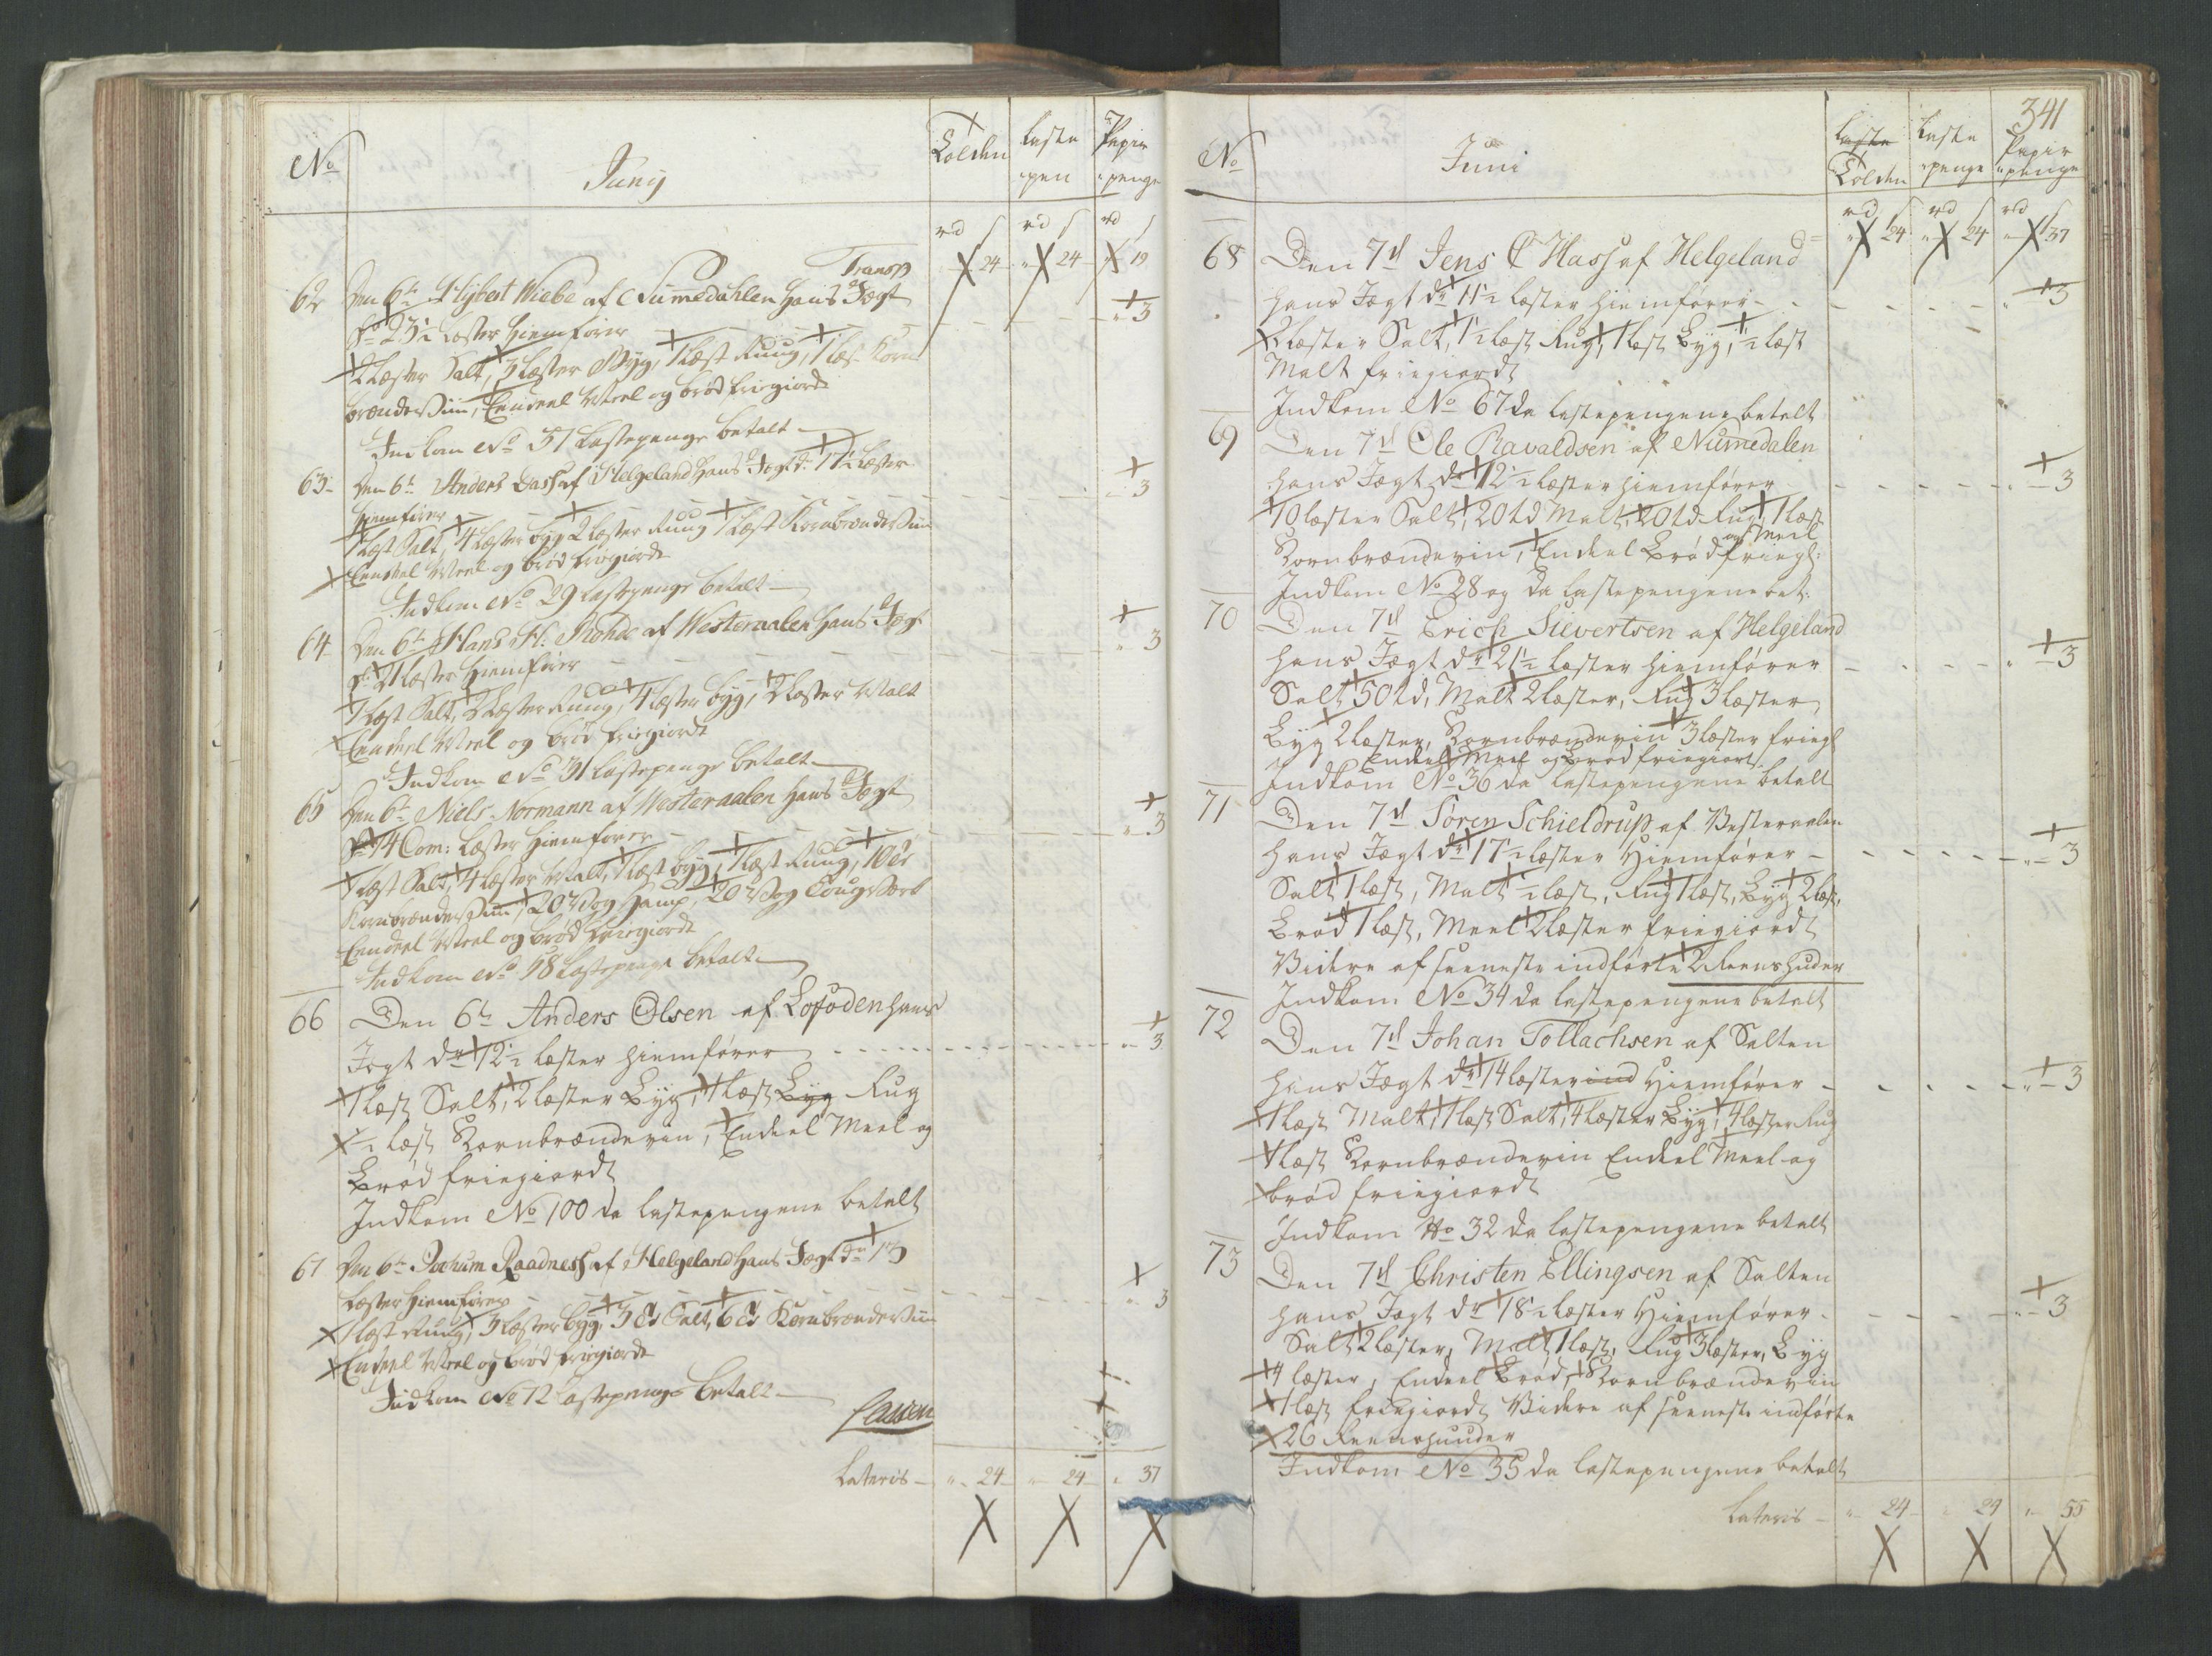 No
Junÿ
Tolden
Laste
pen
Papir
penge
rd s rd s rd s
Transp
24 24 19
62 Den 6te Hybert Wiebe af Numedahlen hans Jægt
dr 23½ Læster hiemfører 3
2 Læster Salt, 3 Læster Byg, 1 Læst Rug, 1 Læst Korn
brændeviin, Eendeel Meel og brød friegiorde
Indkom No 51 Lastepenge betalt
63 Den 6te Anders Dass af Helgeland hans Jægt dr 17½ Læster
hiemfører 3
1 Læst Salt, 4 Læster byg 2 Læster Rug 1 Læst Kornbrændeviin
Eendeel Meel og brød friegiorde
Indkom No 29 Lastepenge betalt
64 Den 6te Hans H: Rohde af Westeraalen hans Jægt
dr 21 Læster hiemfører 3
1 Læst Salt, 2 Læster Rug, 4 Læster byg, 2 Læster Malt
Eendeel Meel og brød friegiorde
Indkom No 31 Lastepenge betalt
65 Den 6te Niels Normann af Westeraalen hans Jægt
dr 14 Com: Læster hiemfører 3
1 Læst Salt, 4 Læster Malt, 1 Læst byg, 1 Læst Rug, 10
Kornbrændeviin, 20 Hamp, 20
Eendeel Meel og brød friegiorde
Indkom No 58 Lastepenge betalt
66 Den 6te Anders Olsen af Lofoden hans
Jægt dr 12½ læster hiemfører 3
1 læst Salt, 2 læster Byg, 1 læst Byg Rug
½ læst Kornbrændevin, Endeel Meel og
Brød friegiordt
Indkom No 100 da lastepengene betalt
67 Den 6te Jochum Raadness af Helgeland hans Jægt dr 13
Læster hiemfører 3
1 Læst Rug, 3 Læster byg, 3 td Salt, 6 td Kornbrændeviin
Eendeel Meel og brød friegiorde
Indkom No 72 Lastepenge betalt
Lassen
Lateris 24 24 37
341
No
Juni
Laste
Tolden
Laste
penge
Papir
penge
rd s rd s rd s
68 Den 7d Jens C Hass af Helgeland 24 24 37
hans Jægt dr 11½ læster hiemfører 3
2 læster Salt, ½ læst Rug, 1 læst Byg, ½ læst
Malt friegiordt
Indkom No 67 da lastepengene betalt
69 Den 7d Ole Ravaldsen af Numedalen
hans Jægt dr 12½ læster hiemfører 3
10 læster Salt, 20 td Malt, 20 td Rug, 1 læst
og Meel
Kornbrændevin, Endeel Brød friegl:
Indkom No 28 og da lastepengene bet:
70 Den 7d Erich Sievertsen af Helgeland
hans Jægt dr 21½ læster hiemfører 3
Salt 50 td, Malt 2 læster, Rug 3 læster,
Byg 2 læster, Kornbrændevin 3 læster friegl
Endeel Meel og Brød friegiort
Indkom No 36 da lastepengene betalt
71 Den 7d Sören Schieldrup af Vesteraalen
hans Jægt dr 17½ læster Hiemfører 3
Salt 1 læst, Malt ½ læst, Rug 1 læst, Byg 2 læst,
Brød 1 læst, Meel 2 læster friegiordt
Videre af seeneste indførte 2 Reenshuder
Indkom No 34 da lastepengene betalt
72 Den 7d Johan Tollachsen af Salten
hans Jægt dr 14 læster ind Hiemfører 3
1 læst Malt, 1 læst Salt, 4 læster Byg, 4 læster Rug
1 læst Kornbrændevin Endeel Meel og
brød friegiordt
Indkom No 32 da lastepengene betalt
73 Den 7d Christen Ellingsen af Salten
hans Jægt dr 18½ læster Hiemfører 3
Salt 2 læster, Malt 1 læst, Rug 3 læster, Byg
4 læster, Endeel Brød, Kornbrændevin
1 læst friegiordt Videre af seeneste indførte
26 Reenshuuder
Indkom No 35 da lastepengene betalt
Lateris 24 24 55